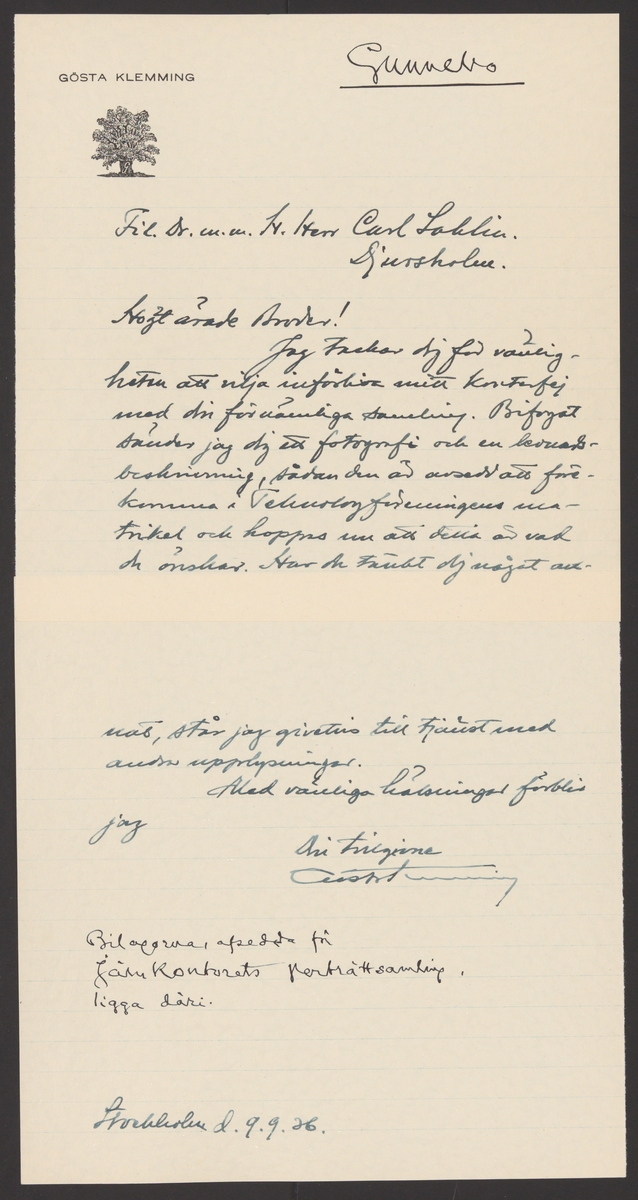 GÖSTA KLEMMING
Gunnebo
Fil. Dr. m.m. H. Herr Carl Sahlin.
Djursholm.
Högt ärade Broder!
Jag tackar dig för vänlig-
heten att vilja införliva mitt konterfej
med din förnämliga samling. Bifogat
sänder jag dig ett fotografi och en levnads-
beskrivning, sådan den är avsedd att före-
komma i Teknologföreningens ma-
trikel och hoppas nu att detta är vad
du önskar. Har du tänkt dig något an-
nat, står jag givetvis till tjänst med
andra upplysningar.
Med vänliga hälsningar förblir
jag
Din tillgivne
Gösta Klemming
Bilagorna, afsedda för
Järnkontorets porträttsamling,
ligga däri.
Stockholm d. 9.9.36.